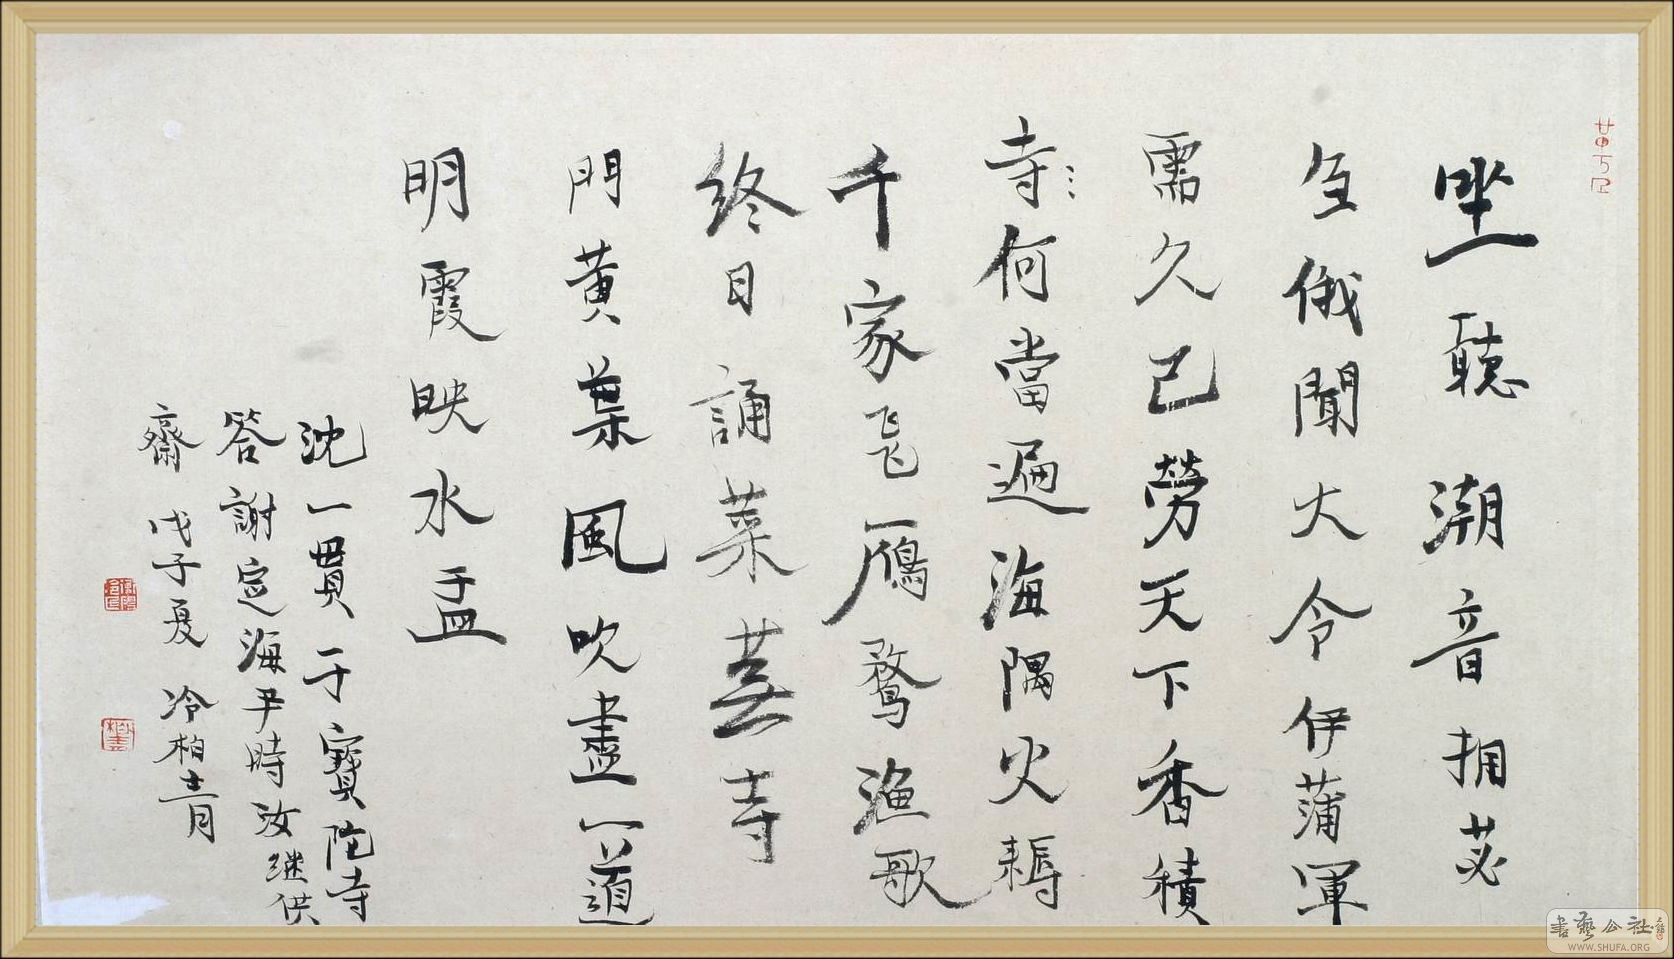 坐聽潮音拥苾
刍俄聞大令伊蒲軍
需久已勞天下香積
寺〻何當遍海隅火耨
千家飛鴈鶩漁歌
終日誦菜芸寺
門黄葉風吹盡一道
明霞映水盂
沈一貫于寶陀寺
答謝定海尹時汝继供
齋 戊子夏 冷柏青
書藝公社
WWW.SHUFA.ORG